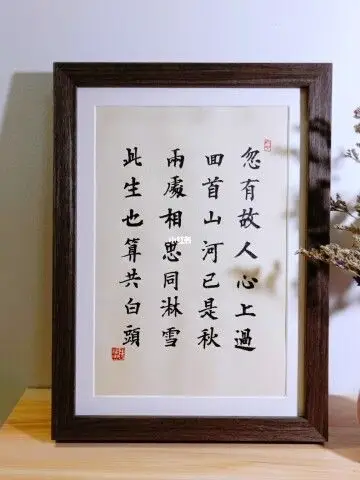 忽有故人心上過
回首山河已是秋
兩處相思同淋雪
此生也算共白頭
小红书